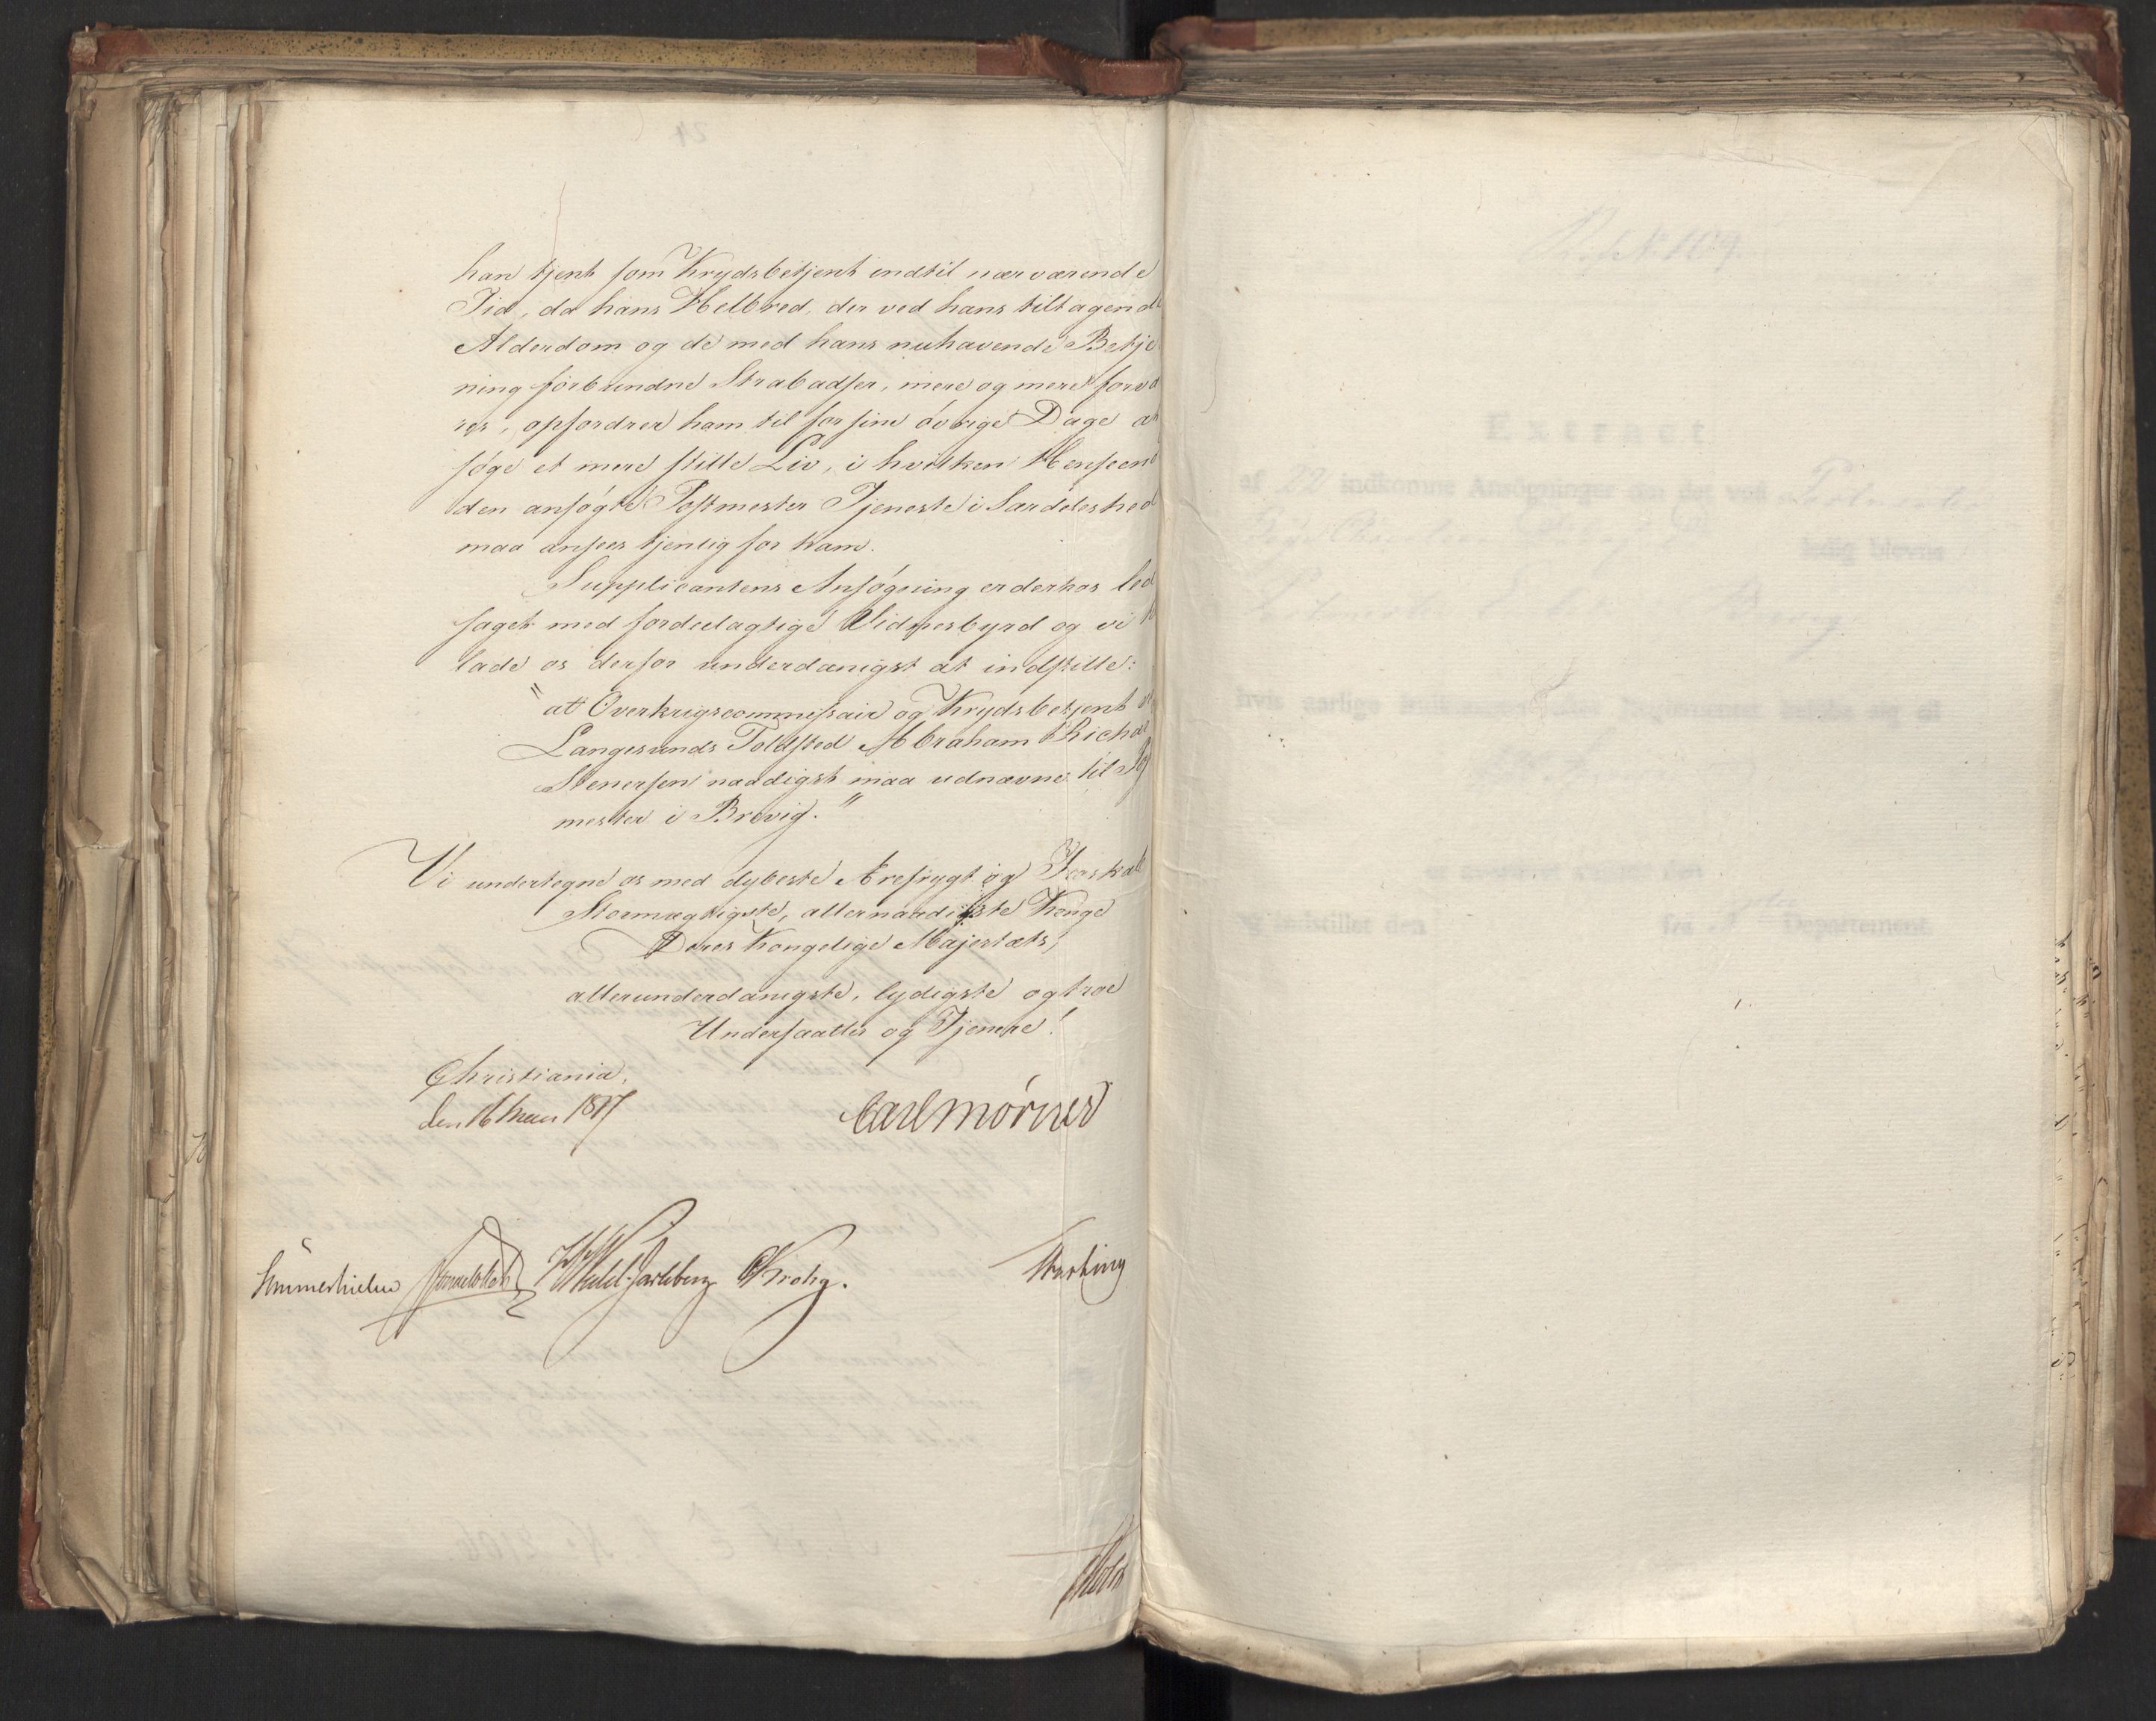 han tjent som Krydsbetjent indtil nærværende
Tid, da hans Helbred, der ved hans tiltagend
Alderdom og de med hans nuhavende Betje
ning forbundne Strabadser, mere og mere forvæ
res, opfordrer ham til for sine øvrige Dage at
søge et mere stille Liv, i hvilken Henseend
den ansøgte Postmester Tjeneste i Særdeleshed
maa ansees tjenlig for ham.
Supplicantens Ansøgning er derhos led
saget med fordeelagtige Vidnesbyrd og vi
lade os derfor underdanigst at indstille:
"at Overkrigscommissair og Krydsbetjent
Langesunds Toldsted Abraham
Stenersen naadigst maa udnævnes til Po
mester i Brevig."
Vi undertegne os med dybeste Ærefrygt og Troskab
Stormægtigste, allernaadigste Konge
Deres Kongelige Majestæts,
allerunderdanigste, lydigste og troe
Undersaatter og Tjenere!
Christiania,
den 16 1817
Carl Mørner
Sommerhielm Wedel-Jarlsberg Krohg.
Extract
af 22 indkomne Ansøgninger om det ved
ledig blevne
hvis aarlige
og indstillet den fra Departement